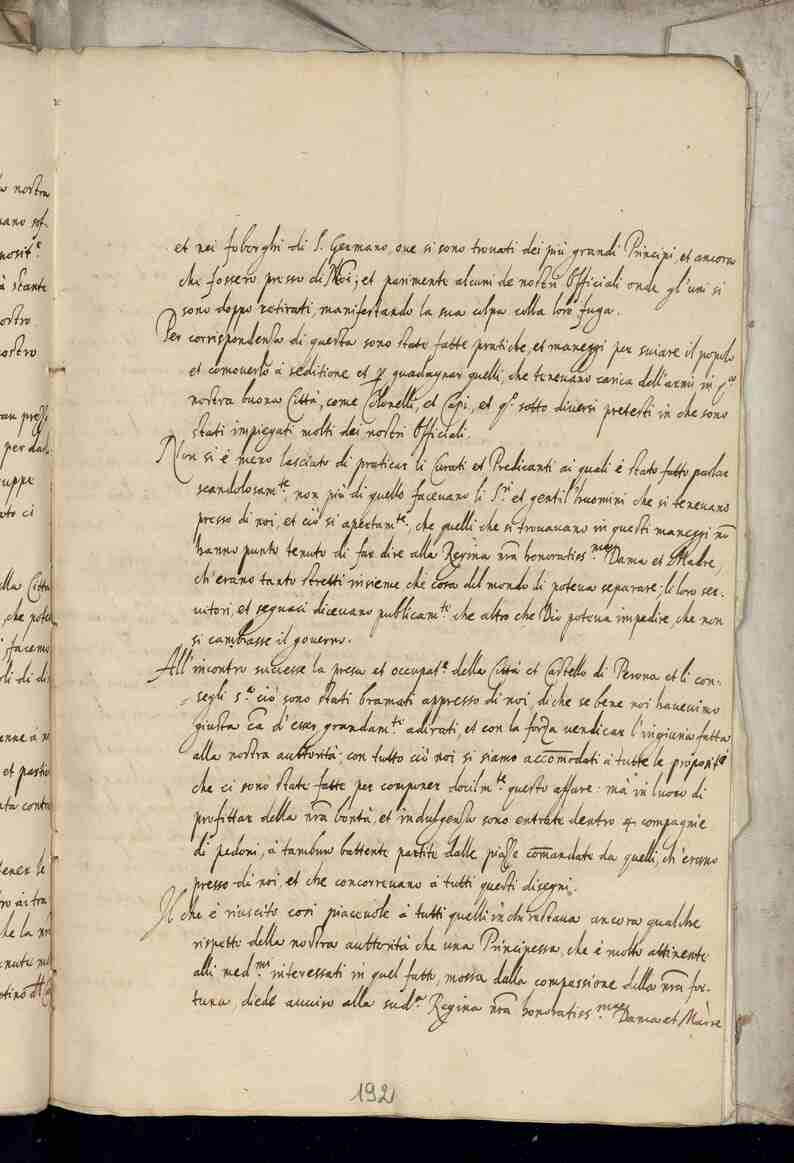 a nostra
nano sot-
nosit.e
à stante
ostro
nostro
per da
uppe
nto ci
lla Città
, che pote
facemo
di di
et pasti
ta contra
tener le
ro ai tra
che la
et nei foborghi di S. Germano, oue si sono trouati dei più grandi Principi, et ancora
che fossero presso di Noi; et parimente alcuni de nostri Officiali onde gl'uni si
sono doppo retirati, manifestando la sua culpa colla loro fuga.
Per corrispondenza di questa sono state fatte pratiche, et maneggi per suiare il populo
et comouerlo à seditione et p guadagnar quelli, che teneuano carica dell'armi in q.ta
nostra buona Città, come Colonelli, et Capi, et q.to sotto diuersi pretesti in che sono
stati impiegati molti dei nostri Officiali.
Non si è meno lasciato di praticar li Curati et Predicanti ai quali è stato fatto parlar
scandolosam.te, non più di quello faceuano li S.ri et gentil'huomini che si teneuano
presso di noi, et ciò si apertam.te, che quelli che si trouauano in questi maneggi nō
hanno punto tenuto di far dire alla Regina nrā honoratiss.ma Dama et Madre,
ch'erano tanto stretti insieme che cosa del mondo li poteua separare; li loro ser-
uitori, et seguaci diceuano publicam.te che altro che Dio poteua impedire, che non
si cambiasse il gouerno.
All'incontro successe la presa et occupat.e della Città et Castello di Perona et li con-
segli s.a ciò sono stati bramati appresso di noi, di che se bene noi haueuimo
giusta cā d'esser grandam.te adirati, et con la forza vendicar l'ingiuria fatta
alla nostra auttorità; con tutto ciò noi si siamo accōmodati à tutte le proposit.e
che ci sono state fatte per componer docilm.te questo affare: mà in luoco di
profittar della nrā bontà, et indulgenza sono entrate dentro 4 compagnie
di pedoni, à tamburo battente partite dalle piazze comandate da quelli, ch'erano
presso di noi, et che concorreuano à tutti questi disegni.
Il che è riuscito così piaceuole à tutti quelli in chi restaua ancora qualche
rispetto della nostra auttorità che una Principessa, che è molto attinente
alli med.mi interessati in quel fatto, mossa dalla compassione della nrā for-
tuna, diede auuiso alla sud.a Regina nrā honoratiss.ma Dama et Madre
192